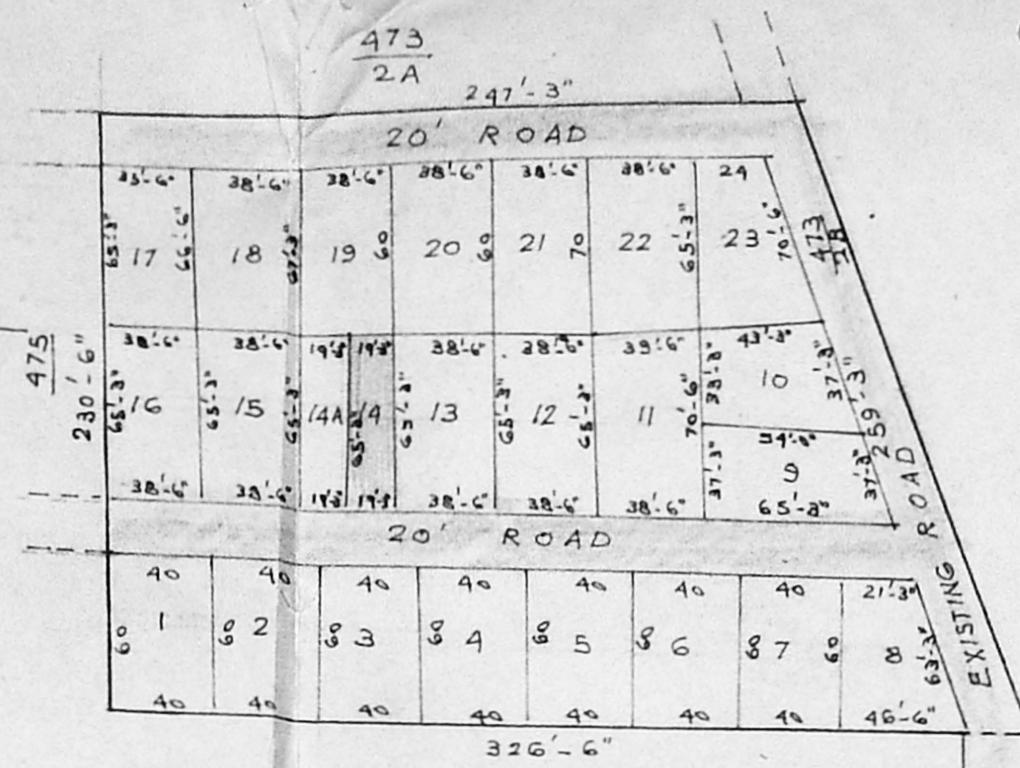 473
2A
247'-3"
20' ROAD
35'-6" 38'-6" 38'-6" 38'-6" 38'-6" 38'-6" 24
65'-3" 17 66'-6" 18 67'-3" 19 60 20 60 21 70 22 65'-3" 23 70'-6" 473
475
230'-6"
38'-6" 38'-6" 19'-3" 19'-3" 38'-6" 38'-6" 39'-6" 43'-3"
65'-3" 16 65'-3" 15 65'-3" 14A 65'-3" 14 13 65'-3" 12 65'-3" 11 70'-6" 10 37'-3" 259'-3"
37'-3" 9 37'-3"
38'-6" 38'-6" 19'-3" 19'-3" 38'-6" 38'-6" 38'-6" 65'-3"
20' ROAD
EXISTING ROAD
40 40 40 40 40 40 40 21'-3"
60 1 60 2 60 3 60 4 60 5 60 6 60 7 60 8 63'-3"
40 40 40 40 40 40 40 46'-6"
326'-6"